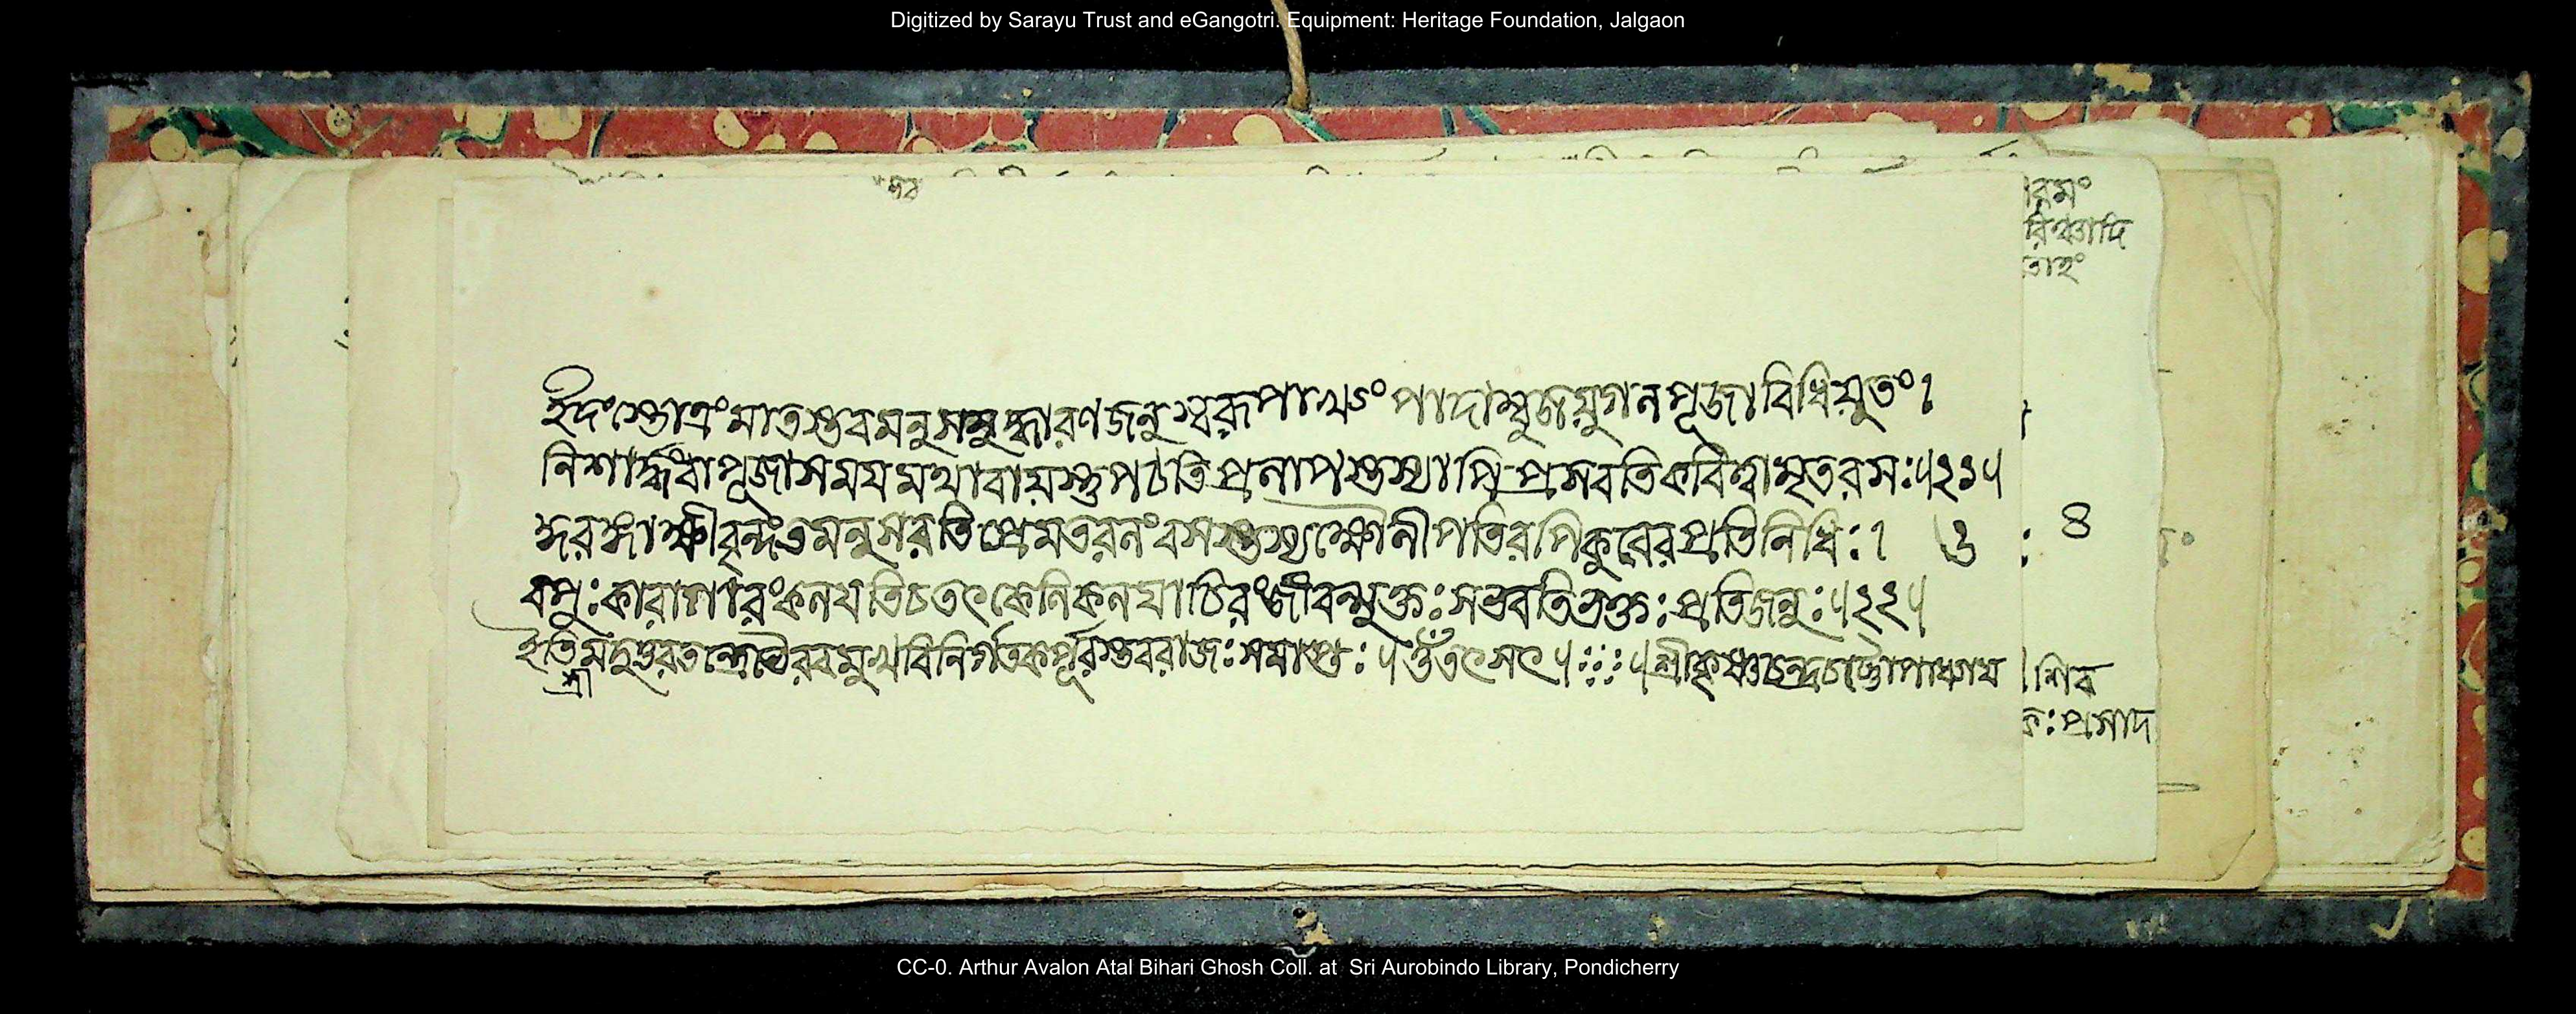 Digitized by Sarayu Trust and eGangotri. Equipment: Heritage Foundation, Jalgaon
রমং
তাহং
ইদংস্তোত্রংমাতস্তবমনুসমুদ্ধারণজনুস্বরূপাখ্যং পাদাম্বুজযুগলপূজাবিধিযুতং।
নিশার্দ্ধংবাপূজাসময়মথাবাযস্তুপঠতিপ্রলাপস্তস্যাপিপ্রসবতিকবিত্বামৃতরসঃ॥২১॥
কুরঙ্গাক্ষীবৃন্দংতমনুসরতিপ্রেমতরলংবসস্তস্যক্ষৌনীপতিরপিকুবেরপ্রতিনিধিঃ। ৪
বপুঃকারাগারংকলয়তিচতৎকেলিকলয়াচিরংজীবন্মুক্তঃসভবতিভক্তঃপ্রতিজনুঃ॥২২॥
ইতিশ্রীমদুত্তরতন্ত্রেভৈরবমুখবিনির্গতকর্পূরস্তবরাজঃসমাপ্তঃ॥ওঁতৎসৎ॥শ্রীকৃষ্ণচন্দ্রচট্টোপাধ্যায় শিব
কঃপ্রসাদ
CC-0. Arthur Avalon Atal Bihari Ghosh Coll. at Sri Aurobindo Library, Pondicherry